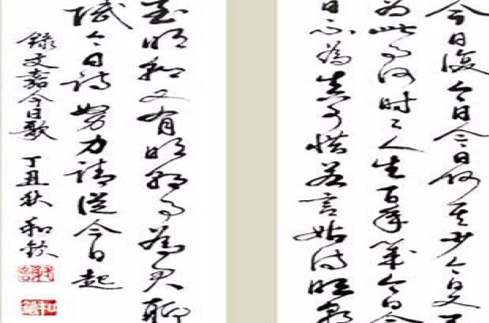 今日復今日今日何其少今日又不
為此事何时了人生百年幾今日今
日不為真可惜若言姑待明朝
至明朝又有明朝事為君聊
賦今日詩努力請從今日起
錄文嘉今日歌 丁丑秋 和